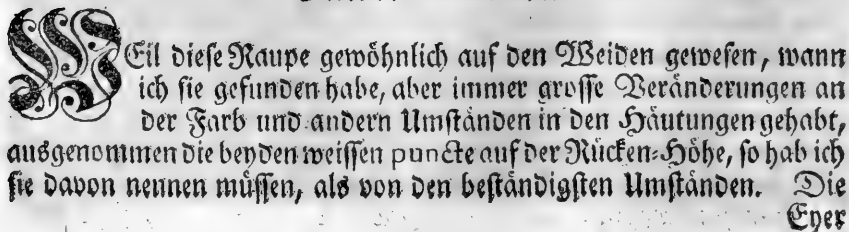 WEil diese Raupe gewöhnlich auf den Weiden gewesen, wann
ich sie gefunden habe, aber immer grosse Veränderungen an
der Farb und andern Umständen in den Häutungen gehabt,
ausgenommen die beyden weissen puncte auf der Rücken-Höhe, so hab ich
sie davon nennen müssen, als von den beständigsten Umständen. Die
Eyer